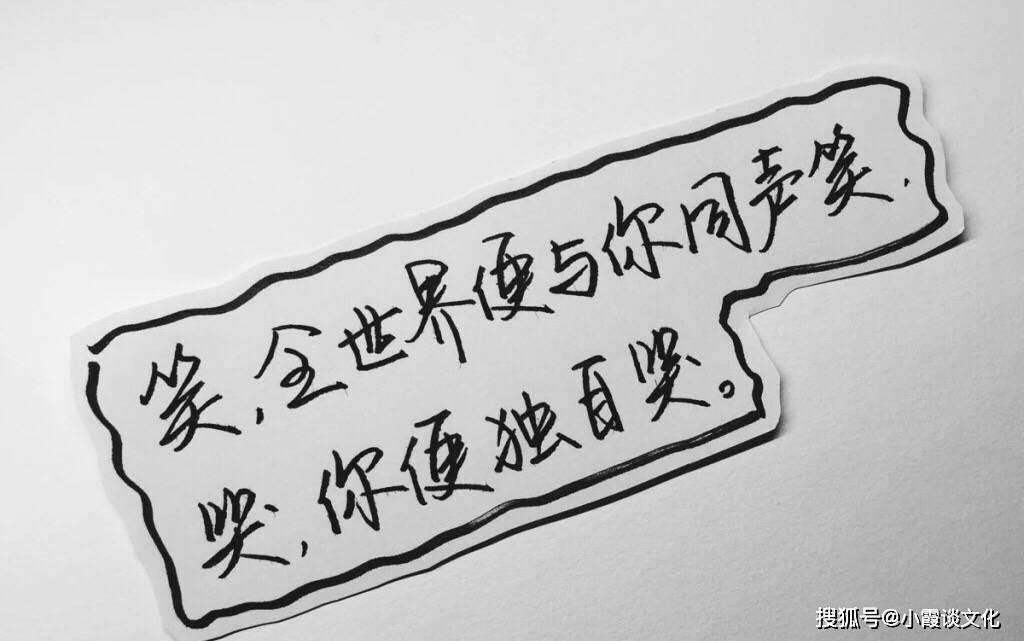 笑,全世界便与你同声笑,
哭,你便独自哭。
搜狐号@小霞谈文化